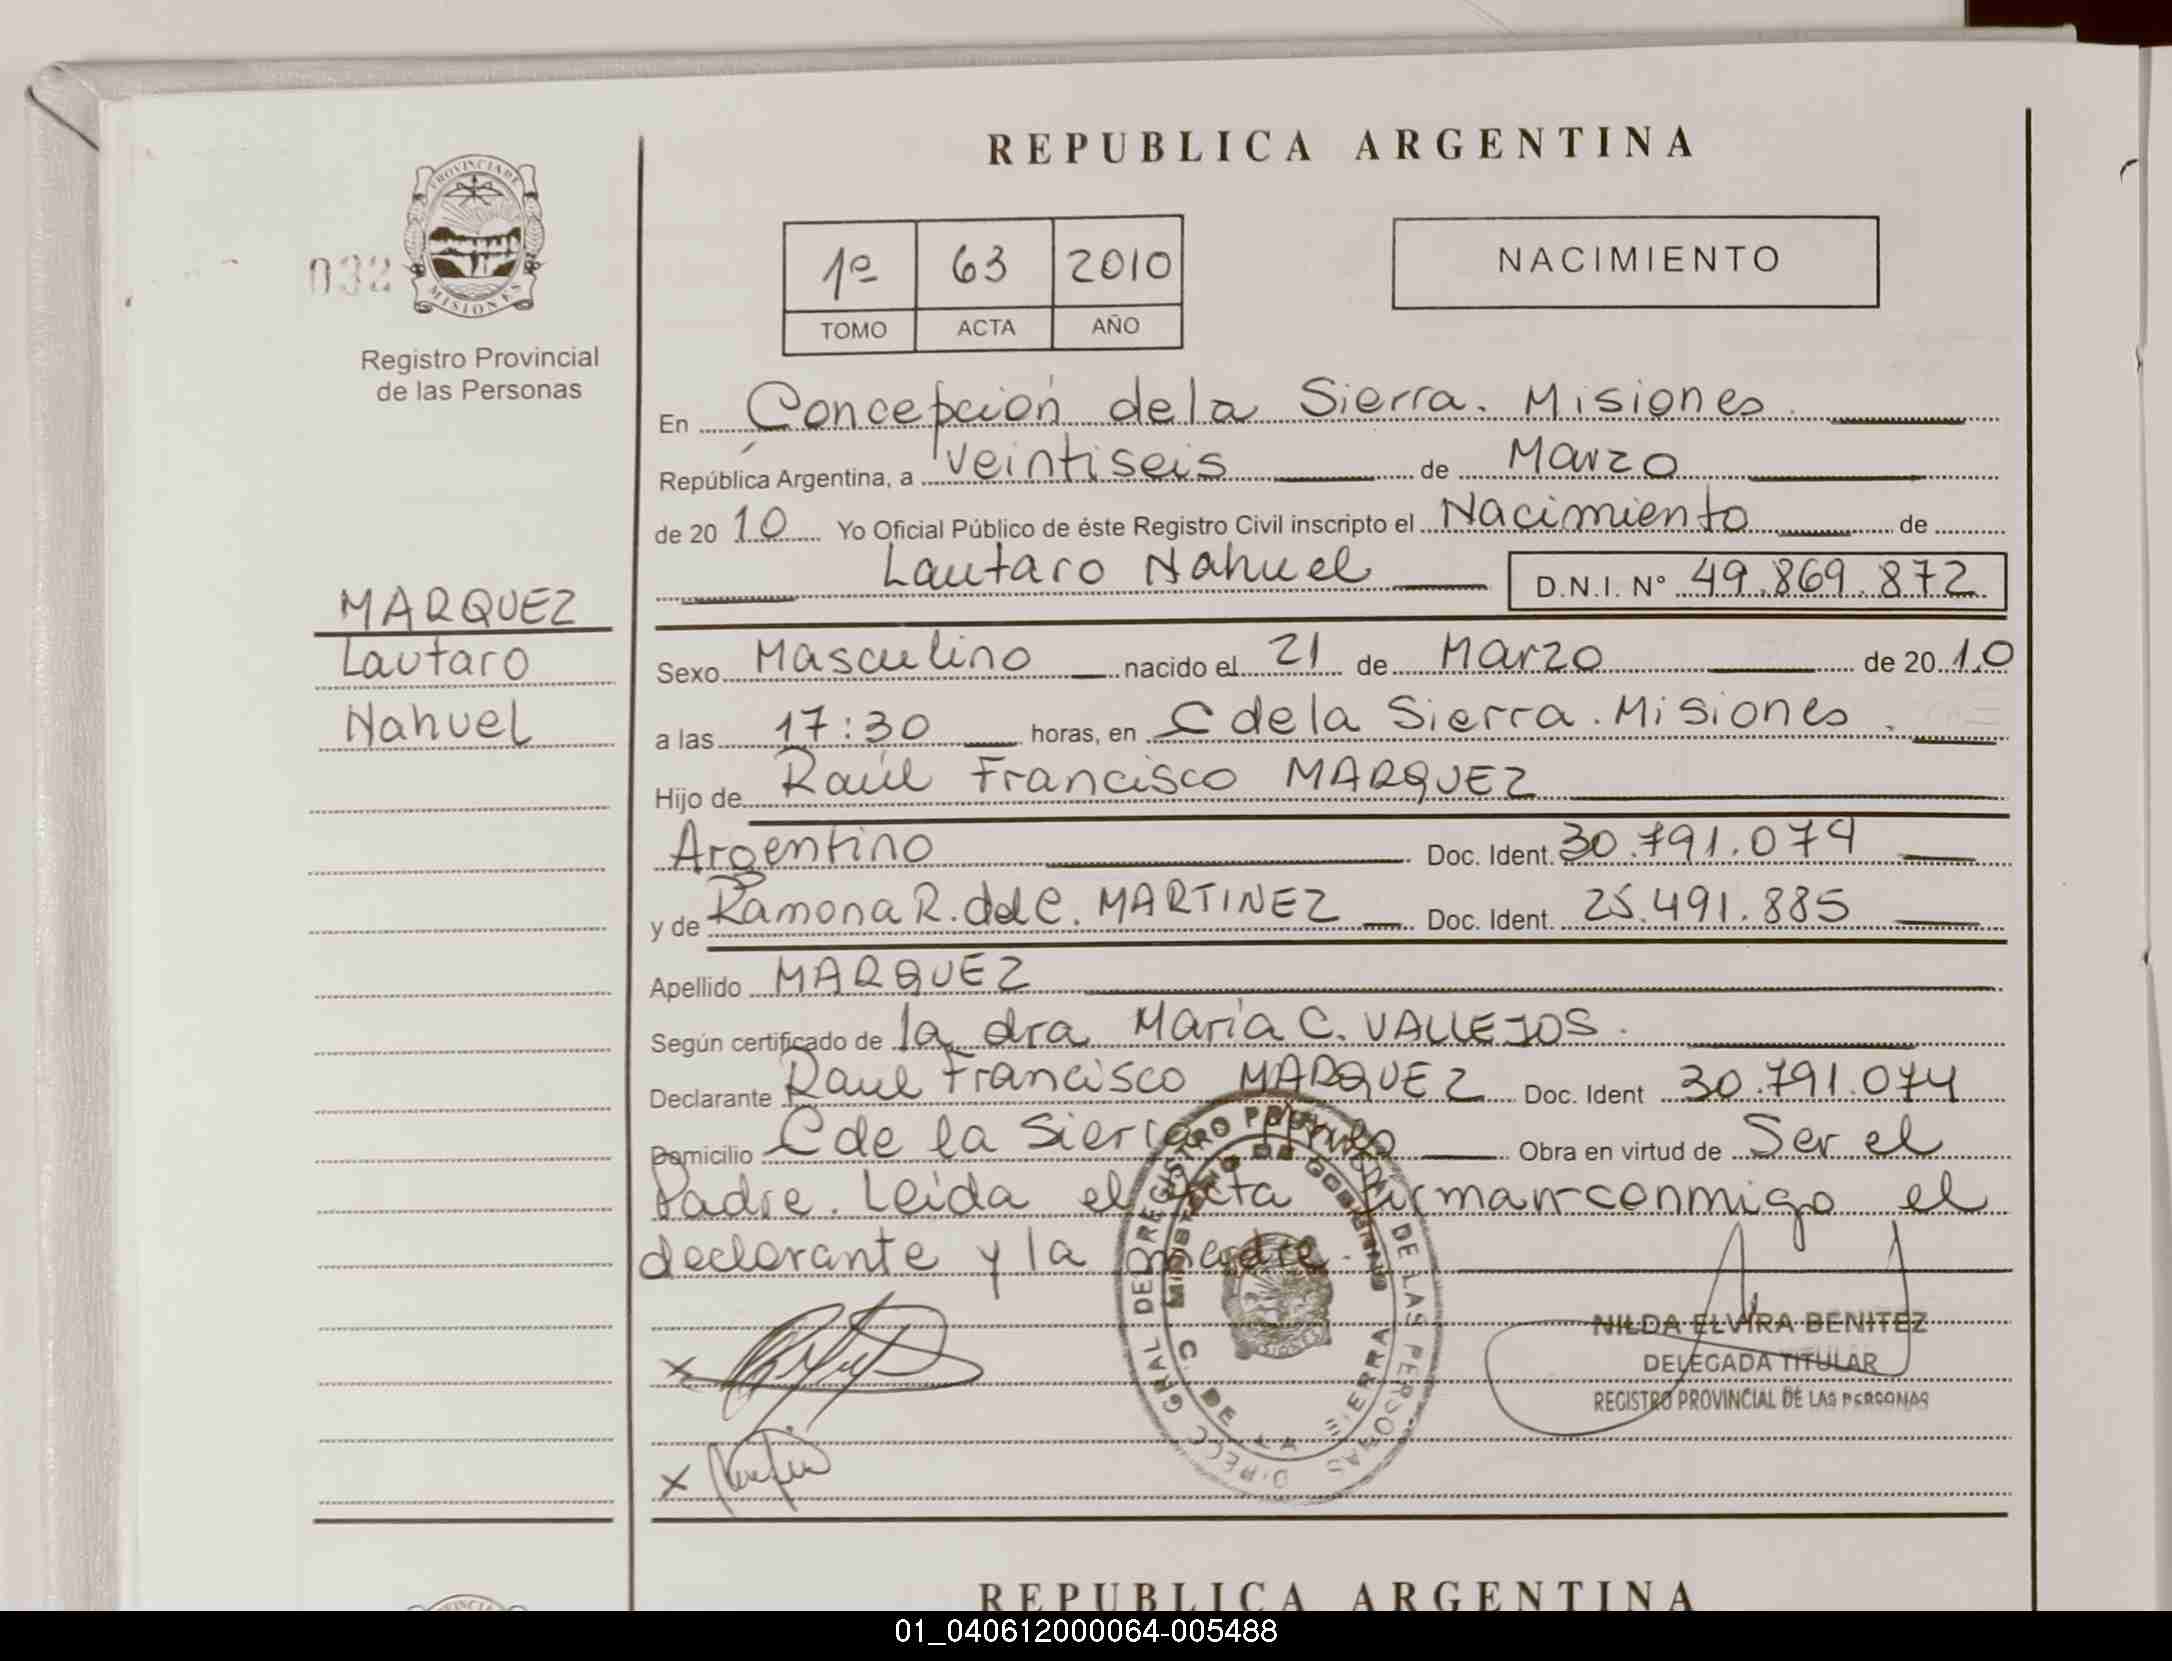 REPUBLICA ARGENTINA
PROVINCIA DE
MISIONES
032
Registro Provincial
de las Personas
1º 63 2010
TOMO ACTA AÑO
NACIMIENTO
En Concepción de la Sierra. Misiones.
República Argentina, a veintiseis de Marzo
de 20 10 Yo Oficial Público de éste Registro Civil inscripto el Nacimiento de
Lautaro Nahuel D.N.I. Nº 49.869.872
MARQUEZ
Lautaro
Nahuel
Sexo Masculino nacido el 21 de Marzo de 20 10
a las 17:30 horas, en C de la Sierra. Misiones.
Hijo de Raúl Francisco MARQUEZ
Argentino Doc. Ident. 30.791.074
y de Ramona R. del C. MARTINEZ Doc. Ident. 25.491.885
Apellido MARQUEZ
Según certificado de la dra María C. VALLEJOS.
Declarante Raul Francisco MARQUEZ Doc. Ident 30.791.074
Domicilio C de la Sierra Obra en virtud de Ser el
Padre. Leida el Acta firman conmigo el
declarante y la madre.
DIRECC GRAL DEL REGISTRO PROVINCIAL DE LAS PERSONAS
MINISTERIO DE GOBIERNO
C. DE LA SIERRA
NILDA ELVIRA BENITEZ
DELEGADA TITULAR
REGISTRO PROVINCIAL DE LAS PERSONAS
X
X
REPUBLICA ARGENTINA
01_040612000064-005488